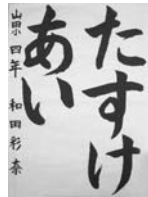 たすけ
あい
山田小 四年 和田彩奈